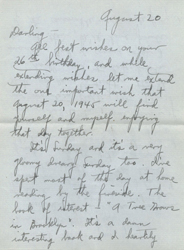 August 20
Darling -
All best wishes on your
26th birthday, and while
extending wishes let me extend
the one important wish that
August 20, 1945 will find
yourself and myself enjoying
that day together.
It's Sunday and it's a very
gloomy dreary Sunday too. I've
spent most of the day at home
reading by the fireside. The
book of interest - "A Tree Grows
in Brooklyn". It's a damn
interesting book and I frankly